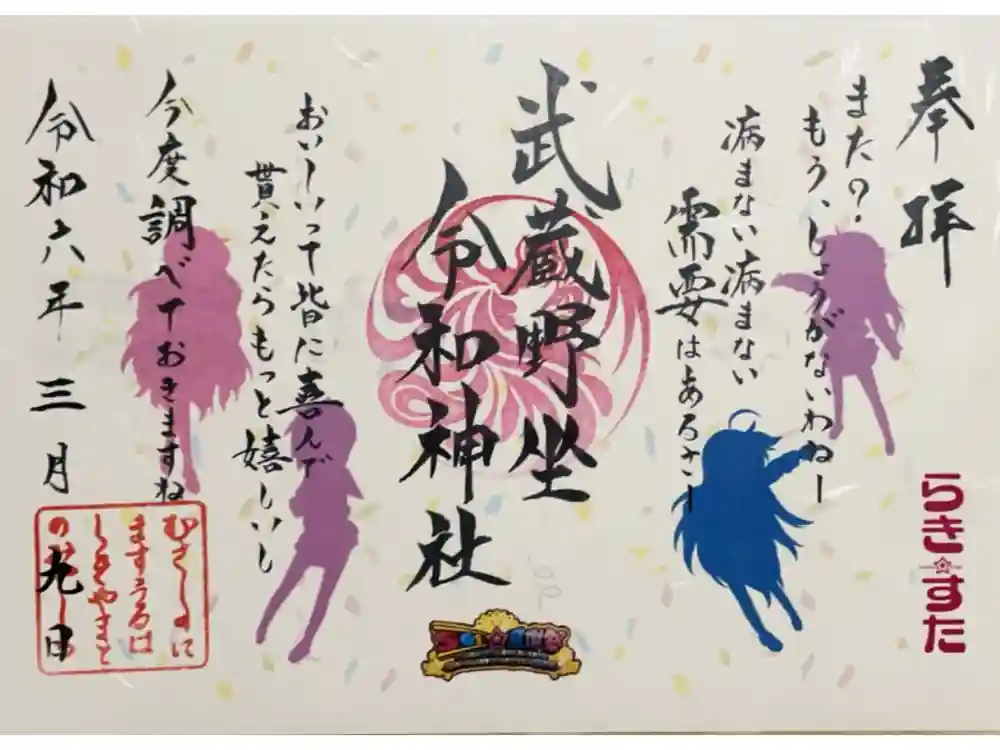 奉拝
らき☆すた
また?
もう、しょうがないわねー
病まない病まない
需要はあるさー
武蔵野坐
令和神社
おいしいって皆に喜んで
貰えたらもっと嬉しいし
今度調べておきますね
令和六年三月
九日
むさしのに
ますうるは
しきやまと